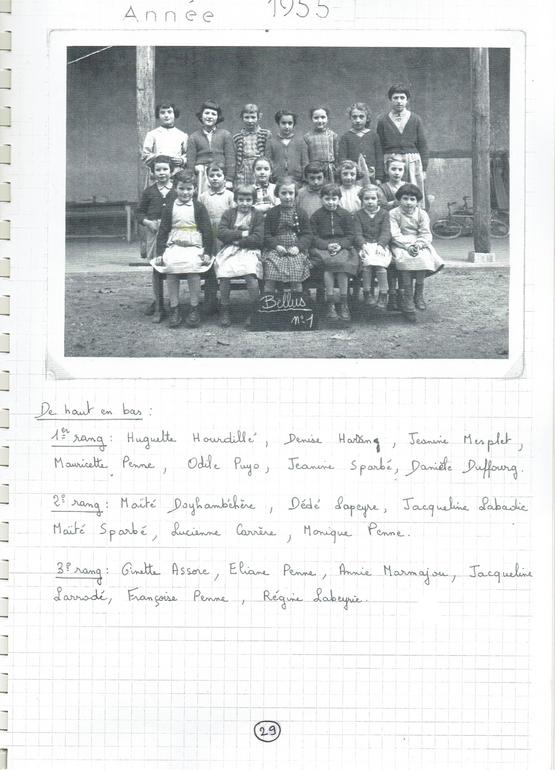 Année 1955
Bellus
n°1
De haut en bas :
1er rang : Huguette Hourdillé, Denise Harang, Jeanine Mesplet,
Mauricette Penne, Odile Puyo, Jeanine Sparbé, Danièle Duffourg.
2e rang : Maïté Doyhambéhère, Dédé Lapeyre, Jacqueline Labadie
Maïté Sparbé, Lucienne Carrère, Monique Penne.
3e rang : Ginette Assore, Eliane Penne, Annie Marmajou, Jacqueline
Larrodé, Françoise Penne, Régine Labeyrie.
29